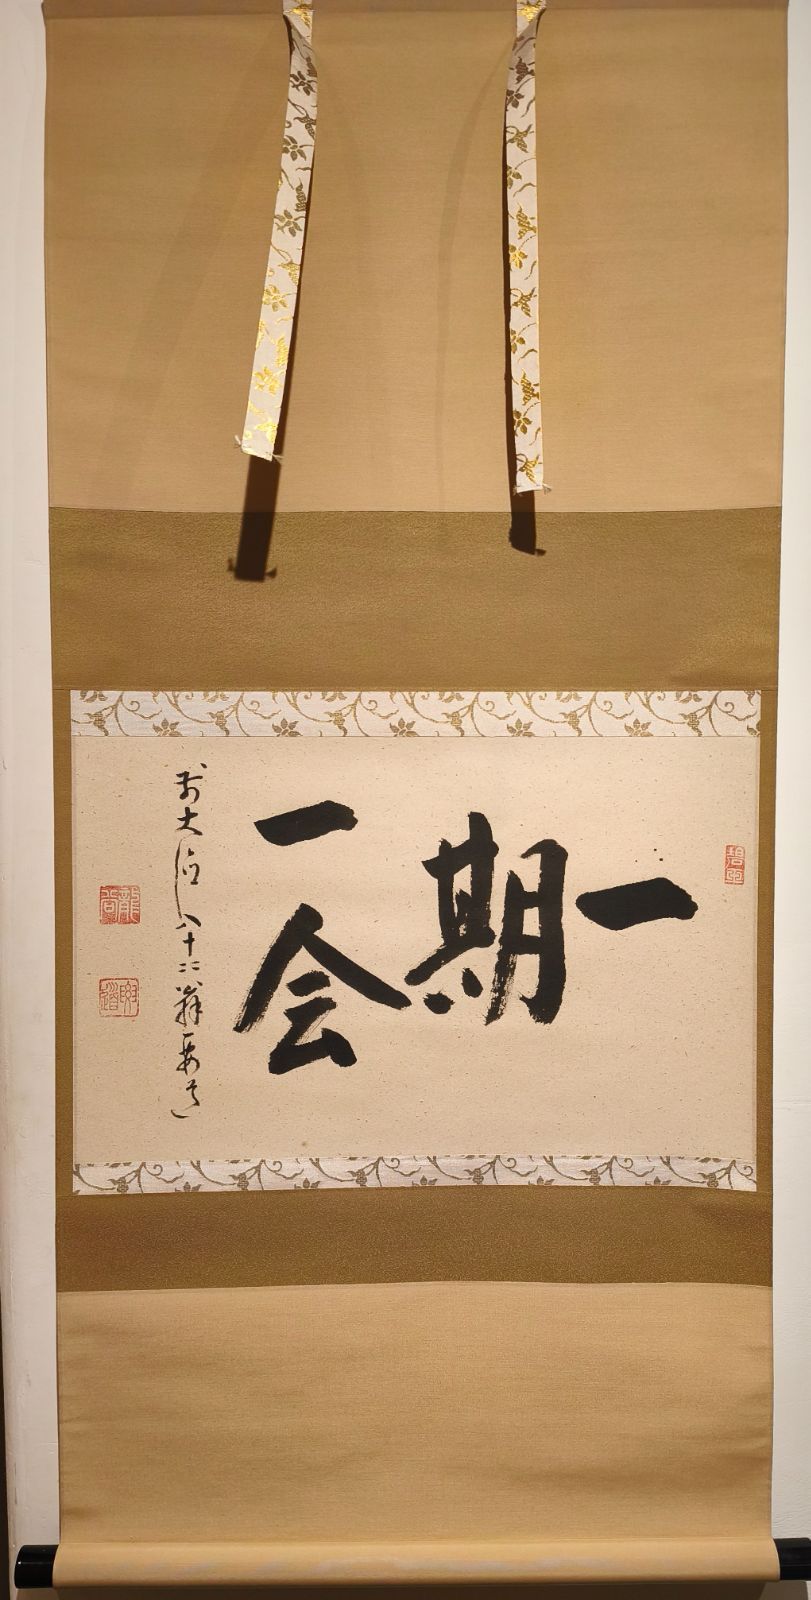 一期
一会
前大徳八十二翁